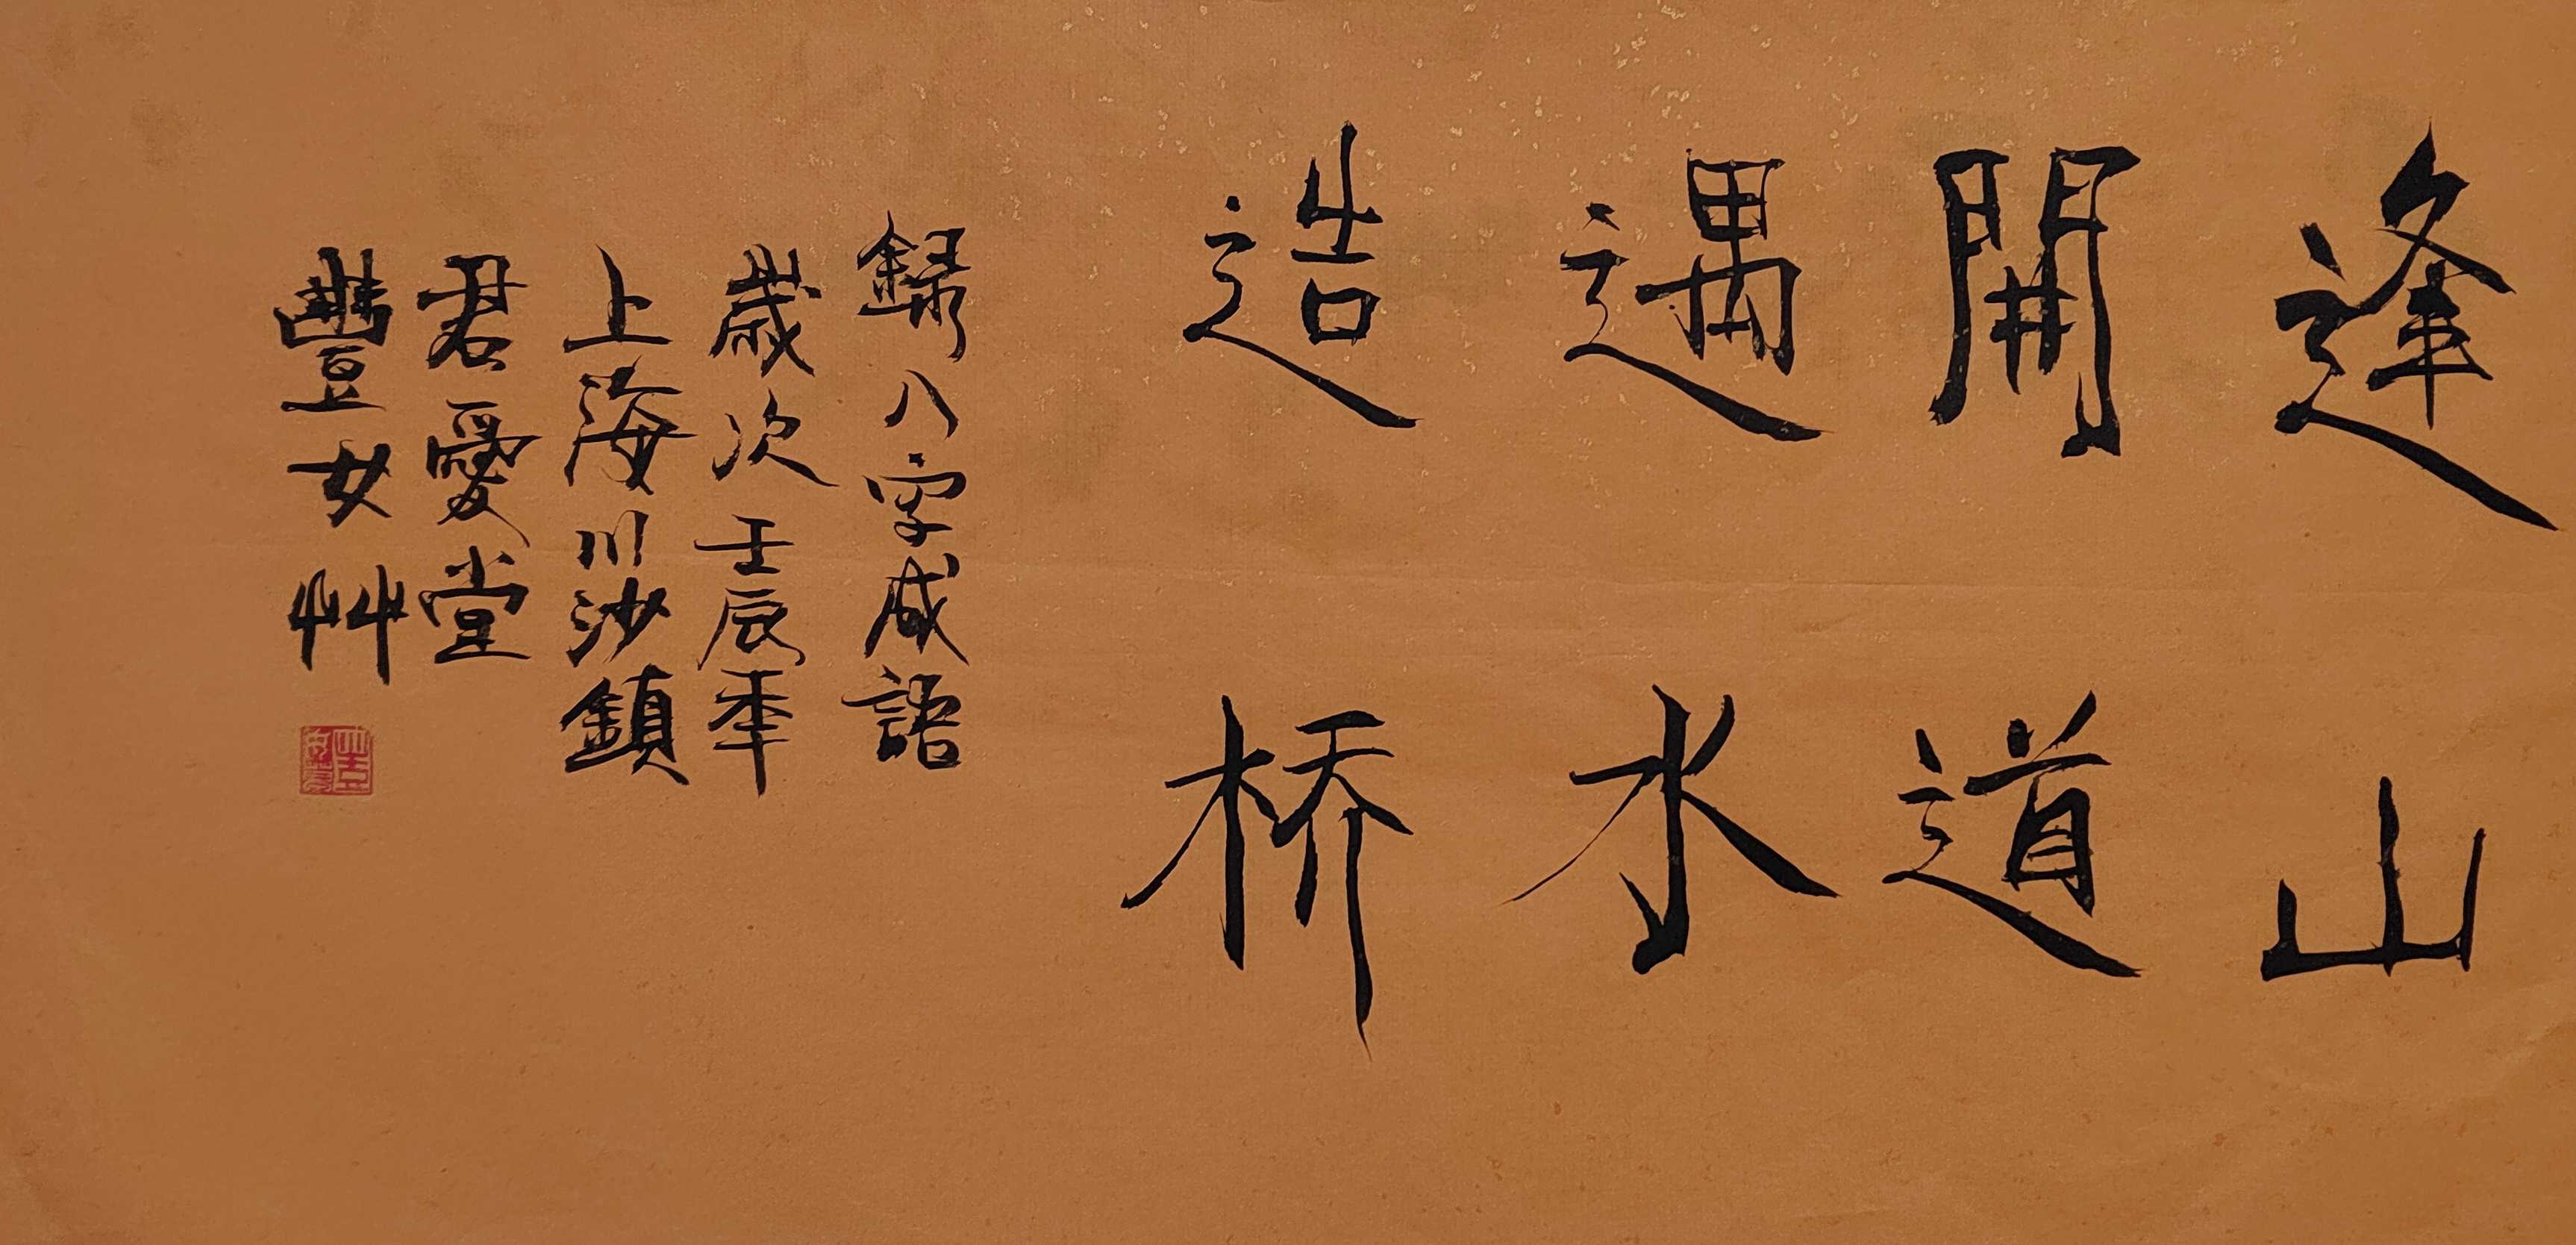 逢山
開道
遇水
造桥
錄八字成語
歲次壬辰年
上海川沙鎮
君愛堂
豐女艸